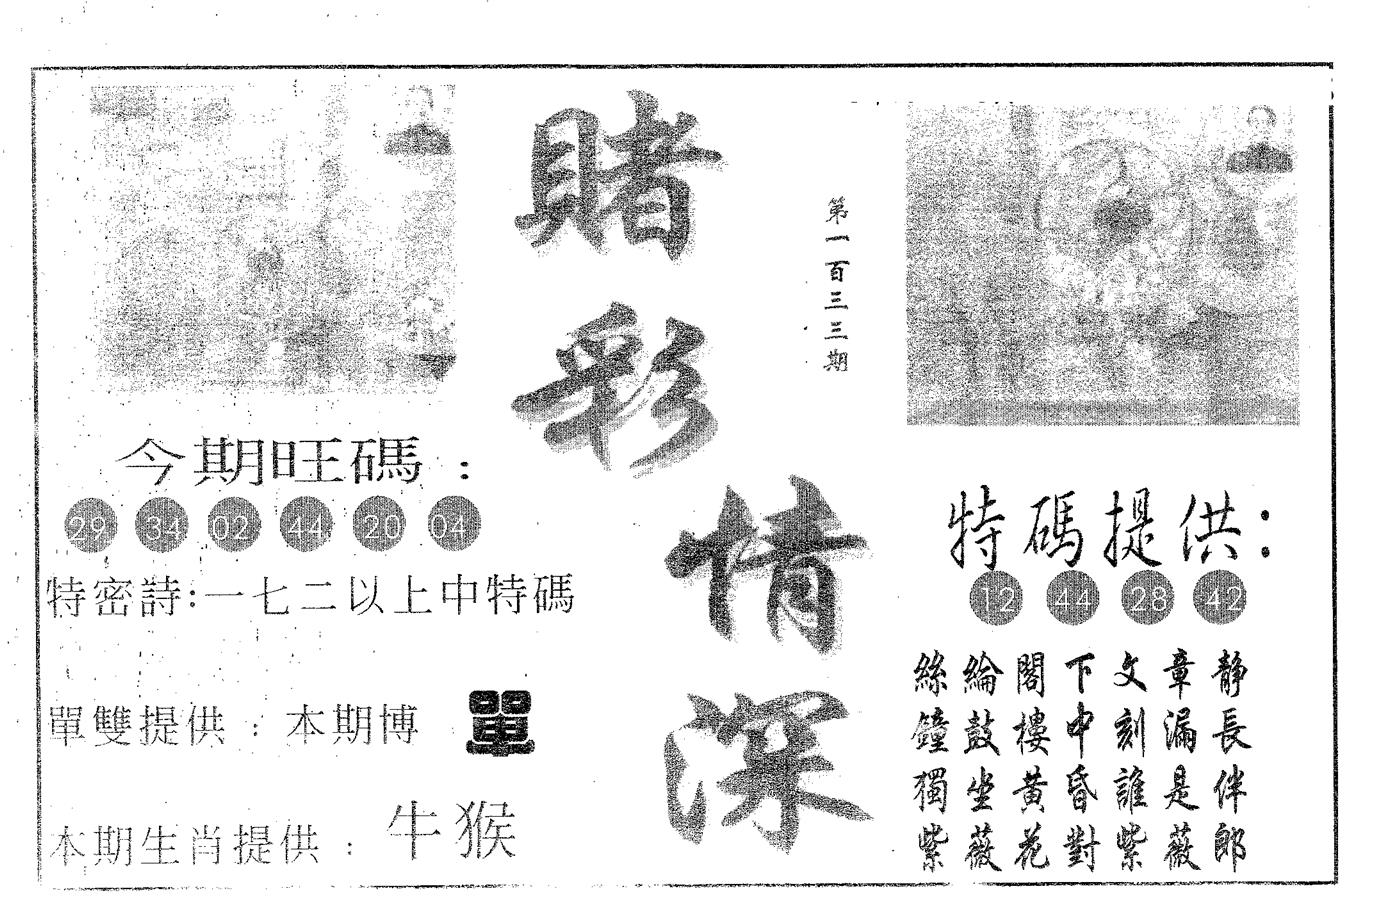 賭彩情深
第一百三三期
今期旺碼：
29 34 02 44 20 04
特密詩:一七二以上中特碼
單雙提供：本期博 單
本期生肖提供：牛猴
特碼提供：
12 44 28 42
絲綸閣下文章靜
鐘鼓樓中刻漏長
獨坐黃昏誰是伴
紫薇花對紫薇郎